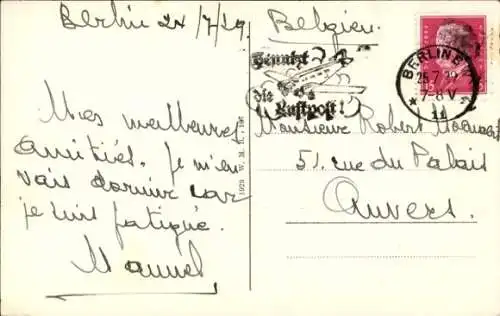 Berlin 24/7/29.
Belgien
Benutzt
die
Luftpost!
BERLIN
25.7.29
7-8 V
11
Mes meilleures
amitiés. Je m'en
vais dormir car
je suis fatigué.
Manuel
1929 W. M. B.
Monsieur Robert
51 rue du Palais
Anvers.